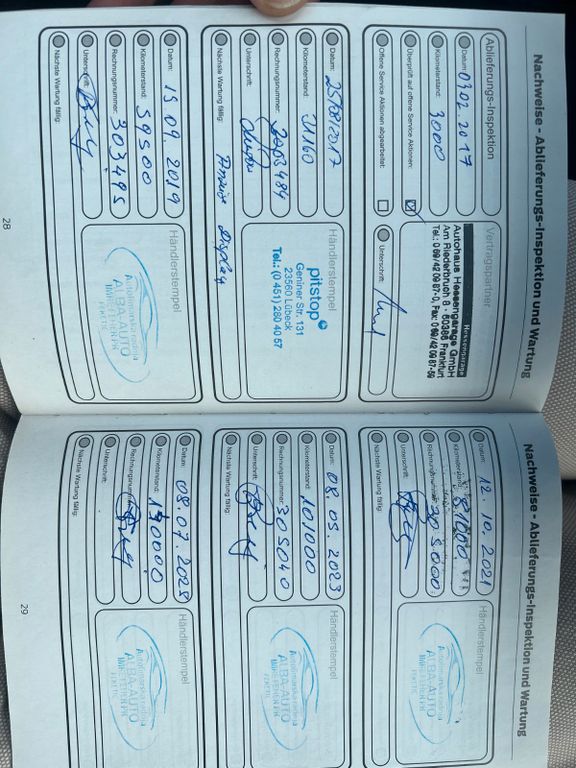 Nachweise - Ablieferungs-Inspektion und Wartung
Ablieferungs-Inspektion
Datum: 03.02.2017
Kilometerstand: 3000
Überprüft auf offene Service Aktionen:
Offene Service Aktionen abgearbeitet:
Vertragspartner
Hessengarage
Autohaus Hessengarage GmbH
Am Riederbruch 8 · 60386 Frankfurt
Tel.: 0 69/42 09 87-0, Fax: 0 69/42 09 87-59
Unterschrift:
Datum: 25/08/2017
Kilometerstand:
Rechnungsnummer:
Unterschrift:
Nächste Wartung fällig: Display
Händlerstempel
pitstop
Geniner Str. 131
23560 Lübeck
Tel.: (0 451) 280 40 57
Datum: 15.09.2019
Kilometerstand: 59500
Rechnungsnummer: 303495
Unterschrift:
Nächste Wartung fällig:
Händlerstempel
Automehanička radnja
ALBA-AUTO
28
Nachweise - Ablieferungs-Inspektion und Wartung
Datum: 12.10.2021
Kilometerstand: 81000
Rechnungsnummer: 305000
Unterschrift:
Nächste Wartung fällig:
Händlerstempel
Automehanička radnja
ALBA-AUTO
Datum: 08.05.2023
Kilometerstand: 101000
Rechnungsnummer: 305040
Unterschrift:
Nächste Wartung fällig:
Händlerstempel
Automehanička radnja
ALBA-AUTO
Datum: 08.07.2025
Kilometerstand:
Rechnungsnummer:
Unterschrift:
Nächste Wartung fällig:
Händlerstempel
Automehanička radnja
ALBA-AUTO
29